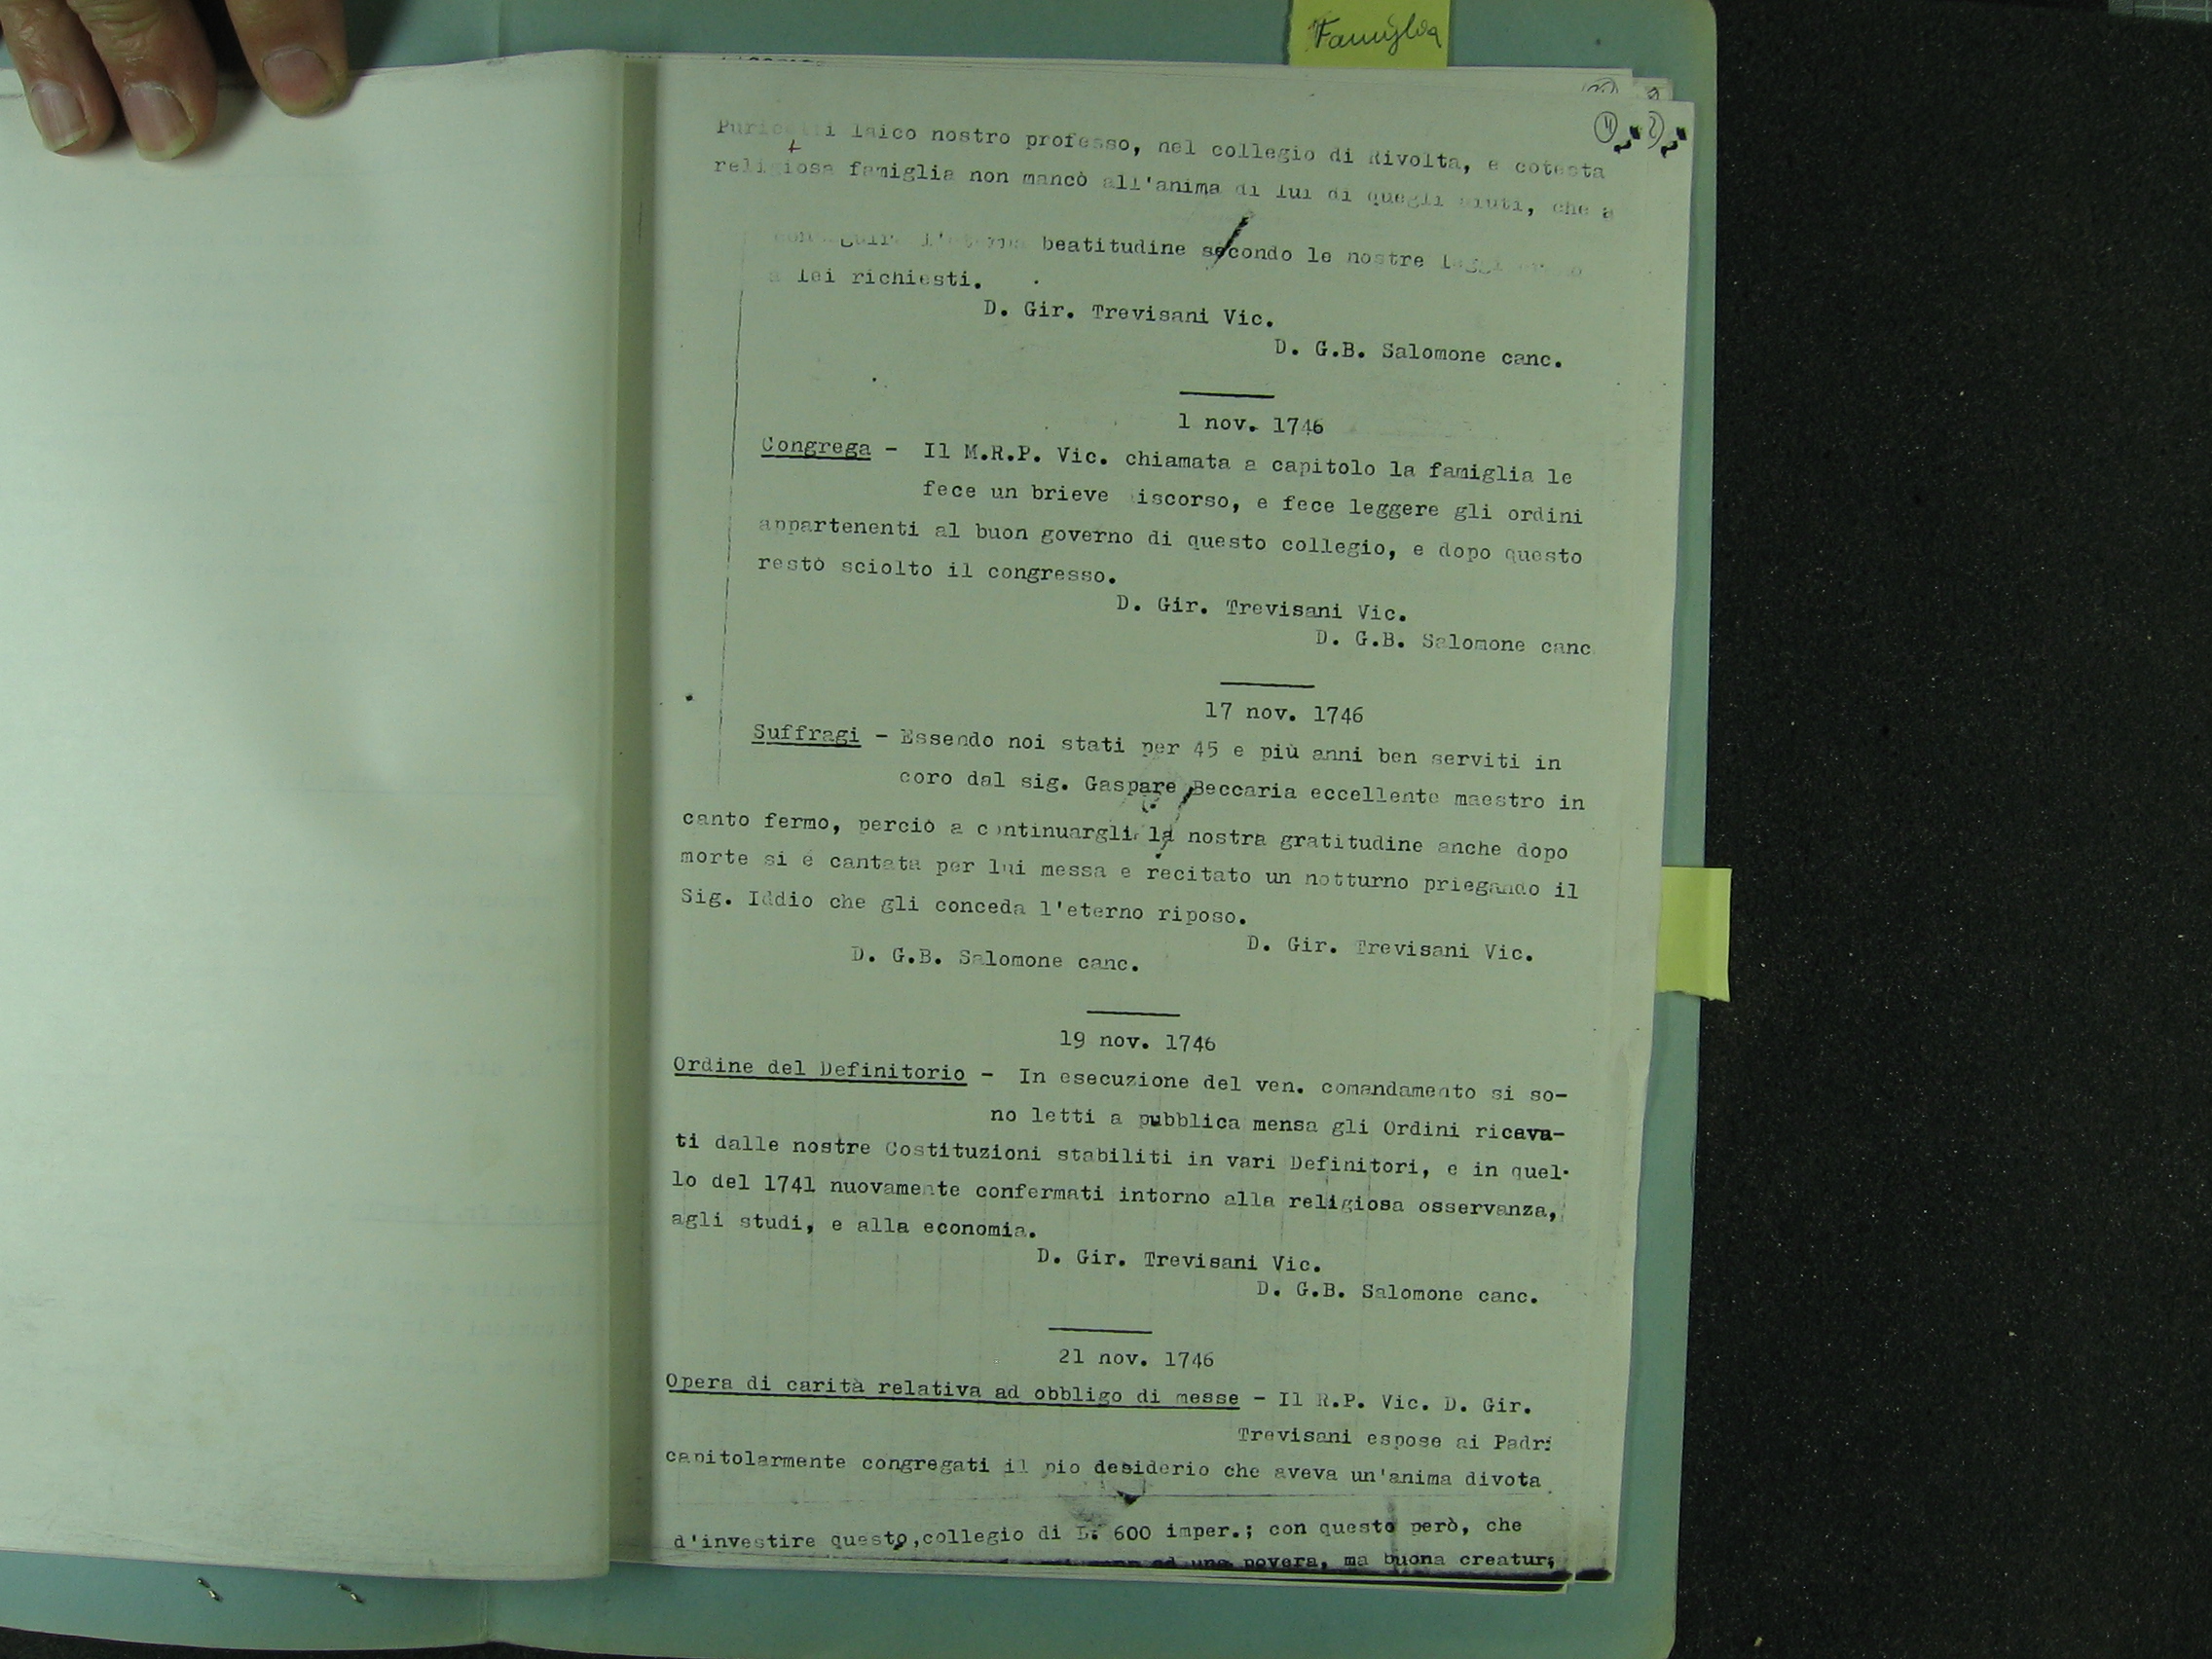 Famiglia
laico nostro professo, nel collegio di Rivolta, e cotesta
religiosa famiglia non mancò all'anima di lui di quegli aiuti, che a
beatitudine secondo le nostre
lei richiesti.
D. Gir. Trevisani Vic.
D. G.B. Salomone canc.
1 nov. 1746
Congrega - Il M.R.P. Vic. chiamata a capitolo la famiglia le
fece un brieve iscorso, e fece leggere gli ordini
appartenenti al buon governo di questo collegio, e dopo questo
restò sciolto il congresso.
D. Gir. Trevisani Vic.
D. G.B. Salomone canc
17 nov. 1746
Suffragi - Essendo noi stati per 45 e più anni ben serviti in
coro dal sig. Gaspare Beccaria eccellente maestro in
canto fermo, perciò a continuargli la nostra gratitudine anche dopo
morte si è cantata per lui messa e recitato un notturno priegando il
Sig. Iddio che gli conceda l'eterno riposo.
D. Gir. Trevisani Vic.
D. G.B. Salomone canc.
19 nov. 1746
Ordine del Definitorio - In esecuzione del ven. comandamento si so-
no letti a pubblica mensa gli Ordini ricava-
ti dalle nostre Costituzioni stabiliti in vari Definitori, e in quel-
lo del 1741 nuovamente confermati intorno alla religiosa osservanza,
agli studi, e alla economia.
D. Gir. Trevisani Vic.
D. G.B. Salomone canc.
21 nov. 1746
Opera di carità relativa ad obbligo di messe - Il R.P. Vic. D. Gir.
Trevisani espose ai Padri
capitolarmente congregati il pio desiderio che aveva un'anima divota
d'investire questo, collegio di L. 600 imper.; con questo però, che
ad una povera, ma buona creatura